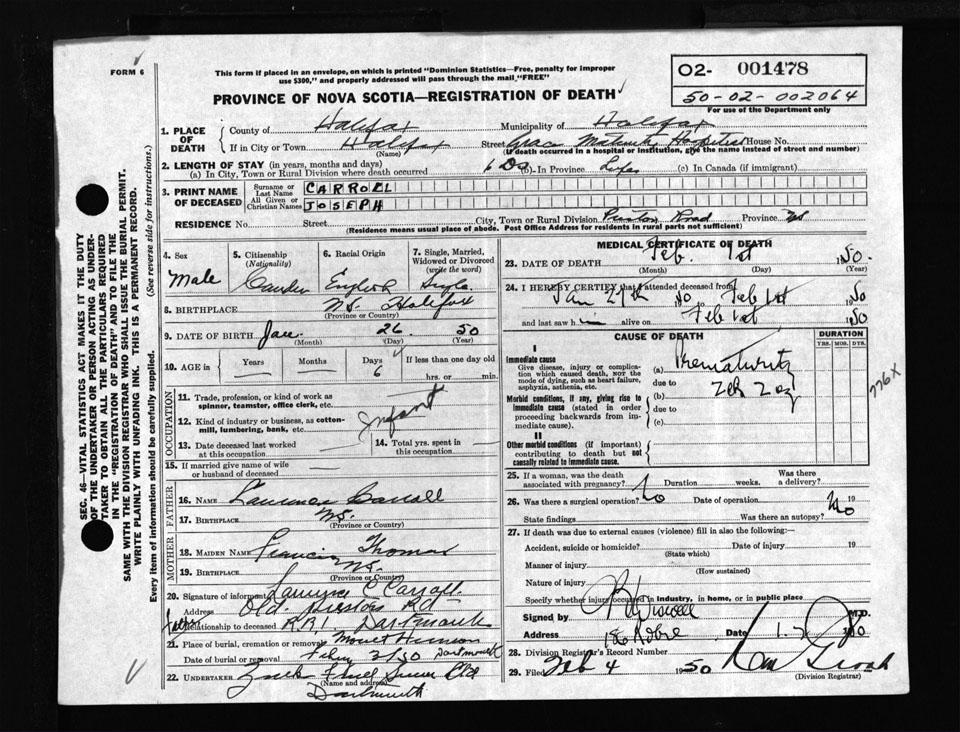 FORM 6
This form if placed in an envelope, on which is printed "Dominion Statistics—Free, penalty for improper
use $300," and properly addressed will pass through the mail, "FREE"
PROVINCE OF NOVA SCOTIA—REGISTRATION OF DEATH
02- 001478
50-02-002064
For use of the Department only
1. PLACE OF DEATH
County of Halifax Municipality of Halifax
If in City or Town Halifax Street Grace Maternity Hospital House No.
(Name) (If death occurred in a hospital or institution, give the name instead of street and number)
2. LENGTH OF STAY (in years, months and days)
(a) In City, Town or Rural Division where death occurred 6 Da (b) In Province Life (c) In Canada (if immigrant)
3. PRINT NAME OF DECEASED
Surname or Last Name CARROLL
All Given or Christian Names JOSEPH
RESIDENCE No. Street City, Town or Rural Division Preston Road Province NS
(Residence means usual place of abode. Post Office Address for residents in rural parts not sufficient)
4. Sex Male
5. Citizenship (Nationality)
6. Racial Origin English
7. Single, Married, Widowed or Divorced (write the word) Single
8. BIRTHPLACE NS. Halifax
(Province or Country)
9. DATE OF BIRTH Jan 26 50
(Month) (Day) (Year)
10. AGE in Years Months Days 6 If less than one day old
hrs. or min.
OCCUPATION
11. Trade, profession, or kind of work as
spinner, teamster, office clerk, etc.
12. Kind of industry or business, as cotton-
mill, lumbering, bank, etc.
Infant
13. Date deceased last worked
at this occupation
14. Total yrs. spent in
this occupation
15. If married give name of wife
or husband of deceased
FATHER
16. NAME Lawrence Carroll
17. BIRTHPLACE NS.
(Province or Country)
MOTHER
18. MAIDEN NAME Francis Thomas
19. BIRTHPLACE NS.
(Province or Country)
20. Signature of informant Lawrence C Carroll
Address Old Preston Rd
Relationship to deceased Father R.R.1 Dartmouth
21. Place of burial, cremation or removal Mount Hermon
Date of burial or removal 2/50 Dartmouth
22. UNDERTAKER Ltd
(Name and address)
Dartmouth
MEDICAL CERTIFICATE OF DEATH
23. DATE OF DEATH Feb. 1st 1950.
(Month) (Day) (Year)
24. I HEREBY CERTIFY that I attended deceased from
Jan 27th 1950 to Feb 1st 1950
and last saw him alive on Feb 1st 1950
CAUSE OF DEATH
DURATION
YRS. MOS. DYS.
I
Immediate cause
Give disease, injury or complica-
tion which caused death, NOT the
mode of dying, such as heart failure,
asphyxia, asthenia, etc.
(a) Prematurity
due to
Morbid conditions, if any, giving rise to
immediate cause (stated in order
proceeding backwards from im-
mediate cause).
(b)
due to
(c)
II
Other morbid conditions (if important)
contributing to death but not
causally related to immediate cause.
776X
25. If a woman, was the death
associated with pregnancy? Duration weeks. Was there
a delivery?
26. Was there a surgical operation? No Date of operation 19
State findings Was there an autopsy? No
27. If death was due to external causes (violence) fill in also the following:—
Accident, suicide or homicide? Date of injury 19
(State which)
Manner of injury
(How sustained)
Nature of injury
Specify whether injury occurred in industry, in home, or in public place
Signed by M.D.
Address Date
28. Division Registrar's Record Number
29. Filed Feb 4 1950
(Division Registrar)
SEC. 46—VITAL STATISTICS ACT MAKES IT THE DUTY
OF THE UNDERTAKER OR PERSON ACTING AS UNDER-
TAKER TO OBTAIN ALL THE PARTICULARS REQUIRED
IN THE "REGISTRATION OF DEATH" AND TO FILE THE
SAME WITH THE DIVISION REGISTRAR WHO SHALL ISSUE THE BURIAL PERMIT.
WRITE PLAINLY WITH UNFADING INK. THIS IS A PERMANENT RECORD.
Every item of information should be carefully supplied. (See reverse side for instructions.)